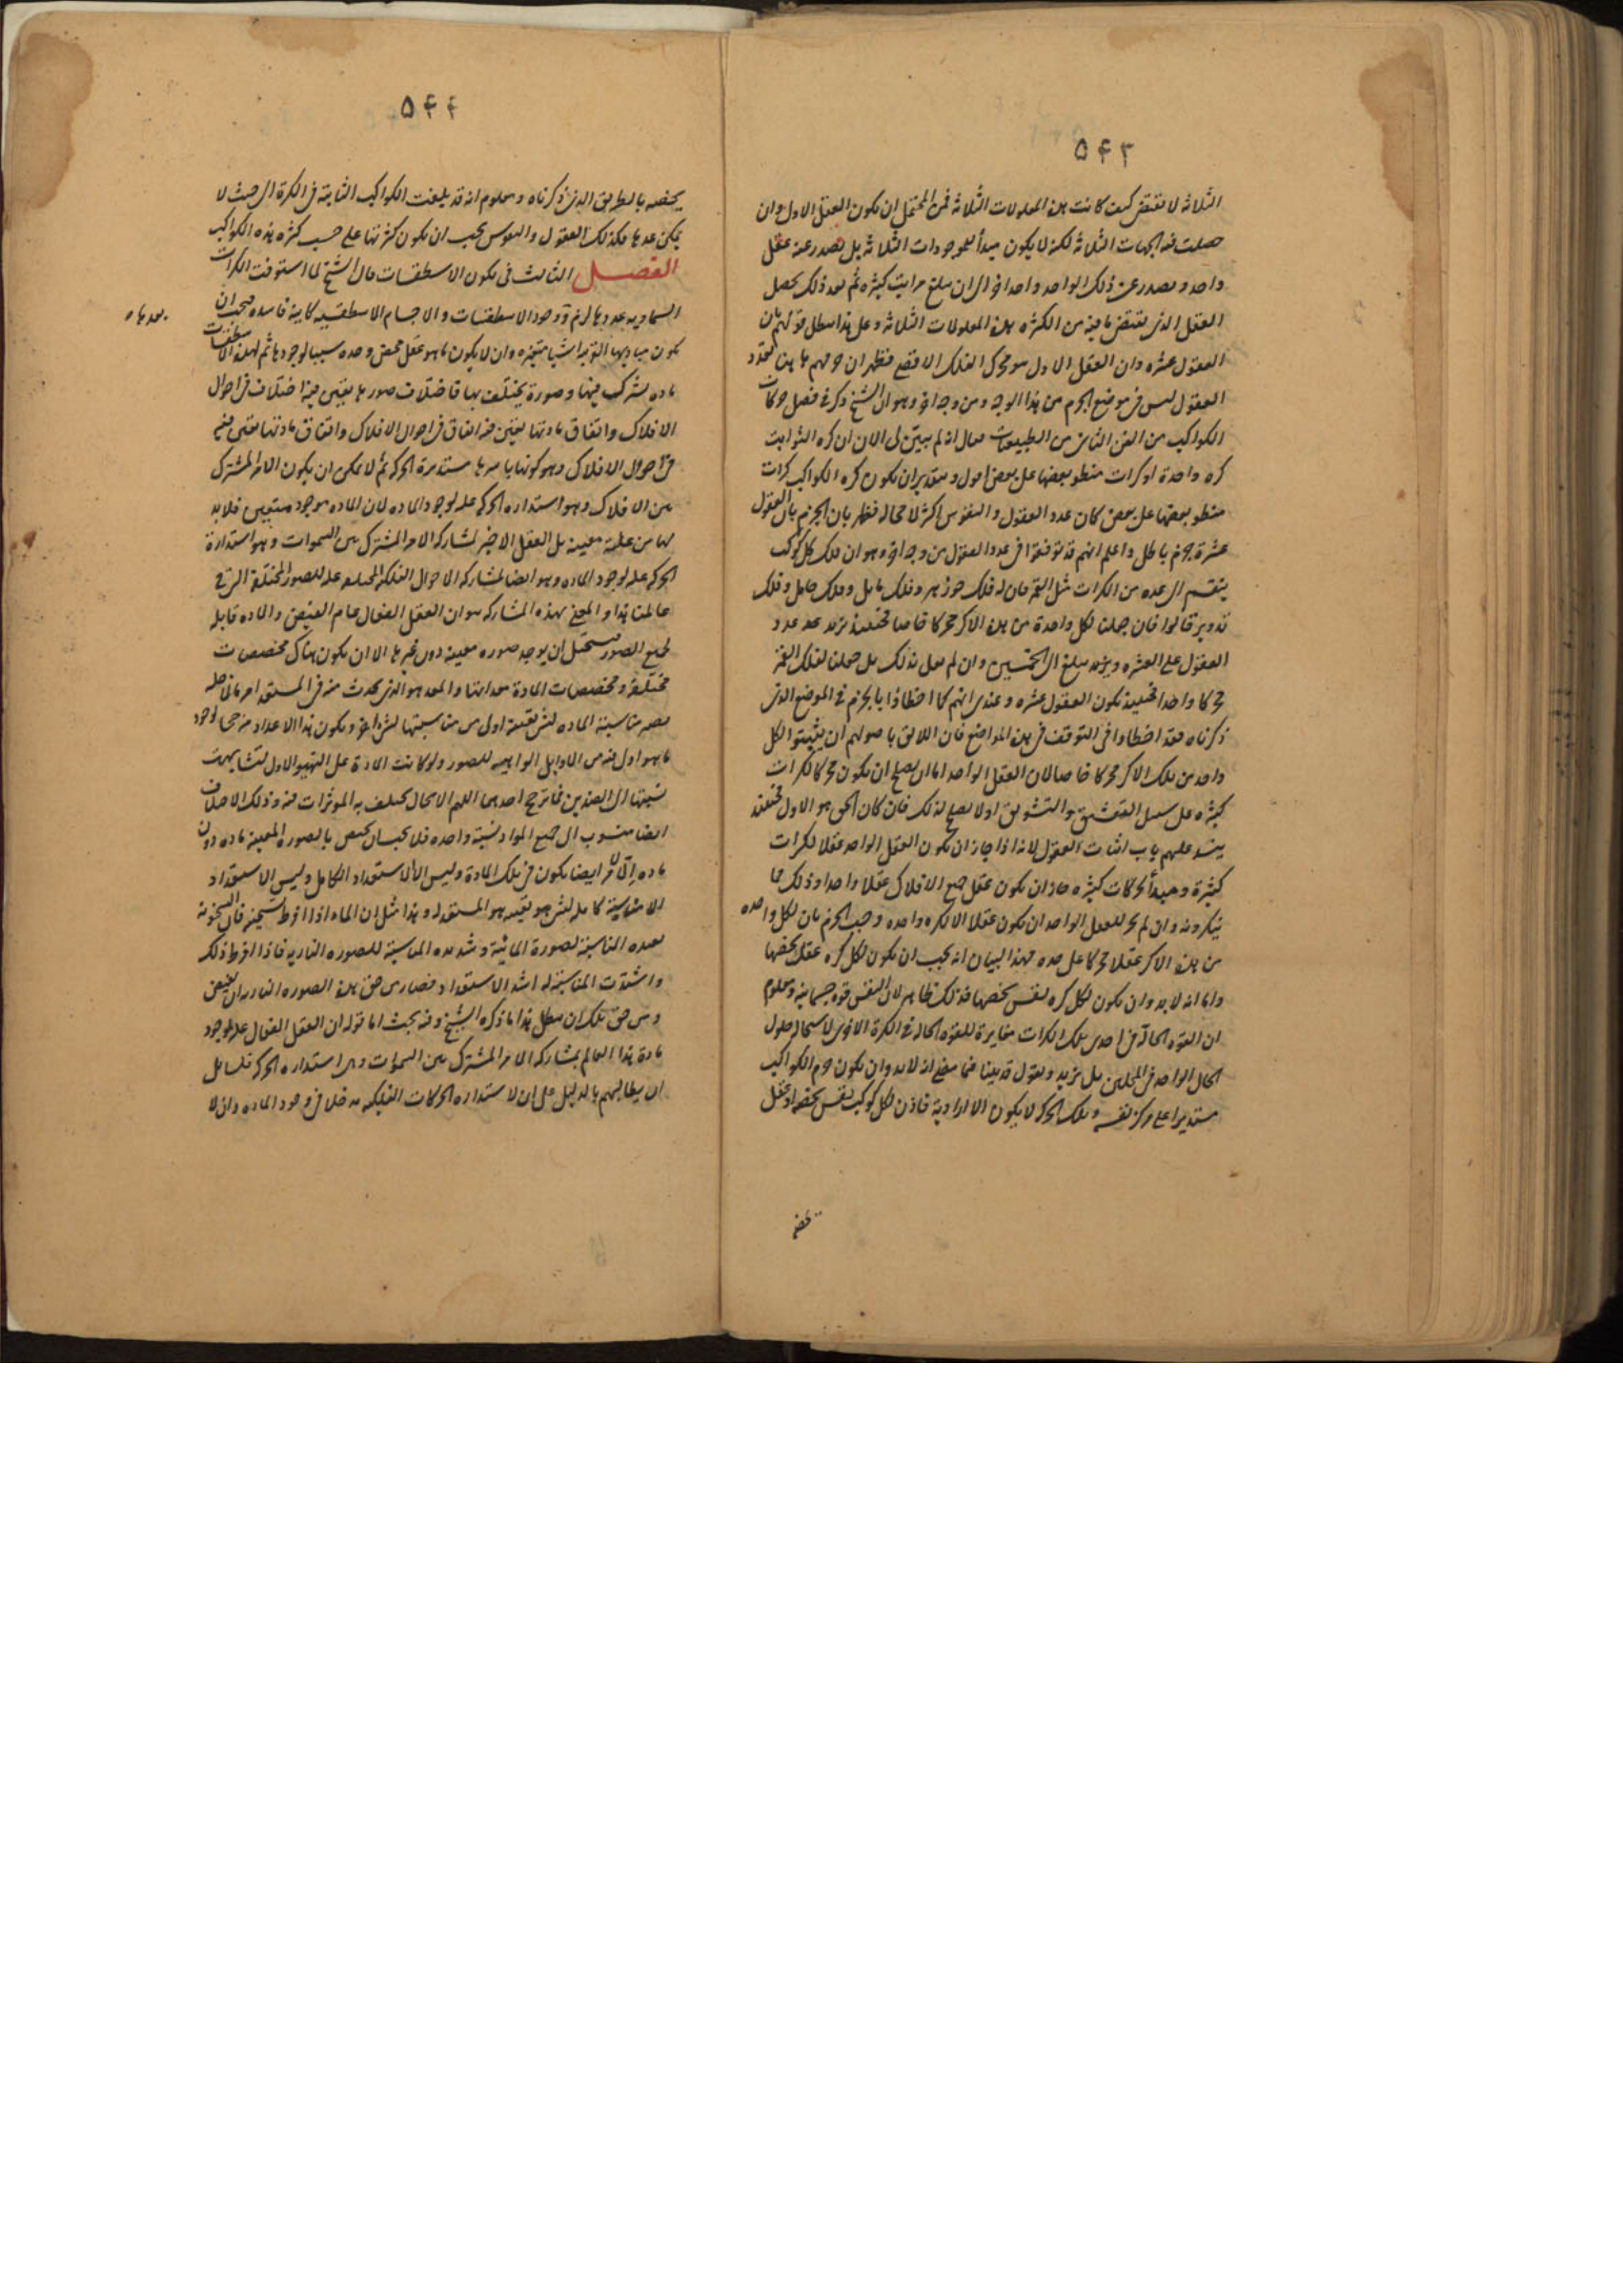 ۵۴۳
الثلاثة لا تقتضى كيف كانت هذه المعلولات الثلاثة فمن المحتمل ان يكون العقل الاول وان
حصلت فيه الجهات الثلاثة لكنه لا يكون مبدأ للموجودات الثلاثة بل يصدر عنه عقل
واحد ويصدر عن ذلك الواحد واحد اخر الى ان يبلغ مراتب كثيرة ثم بعد ذلك يحصل
العقل الذى يقتضى ما فيه من الكثرة هذه المعلولات الثلاثة وعلى هذا يبطل قولهم بان
العقول عشرة وان العقل الاول هو محرك الفلك الاقصى فظهر ان جزمهم هاهنا بعدد
العقول ليس فى موضع الجزم من هذا الوجه ومن وجه اخر وهو ان الشيخ ذكر فى فصل حركات
الكواكب من الفن الثانى من الطبيعيات فقال انه لم يتبين لى الان ان كرة الثوابت
كرة واحدة او كرات منطو بعضها على بعض اقول وبتقدير ان يكون كرة الكواكب كرات
منطو بعضها على بعض كان عدد العقول والنفوس اكثر لا محالة فظهر بان الجزم بان العقول
عشرة جزم باطل واعلم انهم قد توقفوا فى عدد العقول من وجه اخر وهو ان فلك كل كوكب
ينقسم الى عدة من الكرات مثل القمر فان له فلك جوزهر وفلك مايل وفلك حامل وفلك
تدوير قالوا فان جعلنا لكل واحدة من هذه الاكر محركا خاصا فحينئذ يزيد عدد
العقول على العشرة ويزيد يبلغ الى الخمسين وان لم نعل بذلك بل جعلنا لفلك القمر
محركا واحدا فحينئذ تكون العقول عشرة وعندى انهم كما اخطاؤا بالجزم فى الموضع الذى
ذكرناه فقد اخطاوا فى التوقف فى هذه المواضع فان اللائق باصولهم ان يثبتوا لكل
واحد من تلك الاكر محركا خاصا لان العقل الواحد اما ان يصلح ان يكون محركا لكرات
كثيرة على سبيل التعشيق والتشويق او لا يصلح لذلك فان كان الحق هو الاول فحينئذ
ينسد عليهم باب اثبات العقول لانه اذا جاز ان يكون العقل الواحد عقلا لكرات
كثيرة ومبدأ لحركات كثيرة جاز ان يكون عقل جميع الافلاك عقلا واحدا وذلك مما
ينكرونه وان لم يجز للعقل الواحد ان يكون عقلا الا لكرة واحدة وجب الجزم بان لكل واحدة
من هذه الاكر عقلا محركا على حده فهذا البيان انه يجب ان يكون لكل كرة عقل يخصها
واما انه لا بد وان يكون لكل كرة نفس يخصها فذلك ظاهر لان النفس قوة جسمانية ومعلوم
ان القوة الحالة فى احدى تلك الكرات مغايرة للقوة الحالة فى الكرة الاخرى لاستحالة حلول
الحال الواحد فى المحلين بل نزيد ونقول قد بينا فيما مضى انه لا بد وان يكون جرم الكواكب
مستديرا على مركز نفسه وتلك الحركة لا يكون الا ارادية فاذن لكل كوكب نفس يخصه او عقل
يخصه
۵۴۴
يخصه بالطريق الذى ذكرناه ومعلوم انه قد بلغت الكواكب الثابتة فى الكثرة الى حيث لا
يمكن عدها فكذلك العقول والنفوس يجب ان يكون كثرتها على حسب كثرة هذه الكواكب
الفصل الثالث فى تكون الاسطقسات قال الشيخ لما استوفت الكرات
السماوية عددها لزم وجود الاسطقسات والاجسام الاسطقسية كاينة فاسدة فيجب ان
بعدها
يكون مباديها القريبة اشيا متغيرة وان لا يكون ما هو عقل محض وحده سببا لوجودها ثم لهذه الاسطقسات
مادة يشترك فيها وصورة يختلف بها فاختلاف صورها يعين فيه اختلاف فى احوال
الافلاك واتفاق مادتها يعين فيه اتفاق فى احوال الافلاك واتفاق مادتها يقتضى
فى احوال الافلاك وهو كونها باسرها مستديرة الحركة ثم لا يمكن ان يكون الامر المشترك
بين الافلاك وهو استدارة الحركة علة لوجود المادة لان المادة موجود متعين فلا بد
لها من علة معينة بل العقل الاخير لمشاركة الامر المشترك بين السموات وهو استدارة
الحركة علة لوجود المادة وهو ايضا لمشاركة الاحوال الفلكية المختلفة علة للصور المختلفة التى فى
عالمنا هذا والمعنى بهذه المشاركة هو ان العقل الفعال عام الفيض والمادة قابلة
لجميع الصور فيستحيل ان يوجد صورة معينة دون غيرها الا ان يكون هناك مخصصات
مختلفة ومخصصات المادة معداتها والمعد هو الذى يحدث منه فى المستعد امر ما لاجله
يصير مناسبة المادة لشى بعينه اولى من مناسبتها لشى اخر ويكون هذا الاعداد مرجحا لوجود
ما هو اولى فيه من الاوايل الواهبة للصور ولو كانت المادة على التهيؤ الاول لتشابهت
نسبتها الى الضدين فما ترجح احدهما اللهم الا بحال يختلف به المؤثرات فيه وذلك الاختلاف
ايضا منسوب الى جميع المواد نسبة واحدة فلا يجب ان يختص بالصورة المعينة مادة دون
مادة الا لامر ايضا يكون فى تلك المادة وليس الا الاستعداد الكامل وليس الاستعداد
الا مناسبة كاملة لشى هو بعينه هو المستعد له وهذا مثل ان الماء اذا افرط تسخينه فان السخونة
بعيدة المناسبة لصورة المائية وشديدة المناسبة للصورة النارية فاذا افرط ذلك
واشتدت المناسبة له اشتد الاستعداد فصار من حق هذه الصورة النارية ان يفيض
ومن حق تلك ان تبطل هذا ما ذكره الشيخ وفيه بحث اما قوله ان العقل الفعال علة لوجود
مادة هذا العالم بمشاركة الامر المشترك بين السموات وهى استدارة الحركة فلسايل
ان يطالبهم بالدليل على ان لاستدارة الحركات الفلكية مدخلا فى وجود المادة وان لا